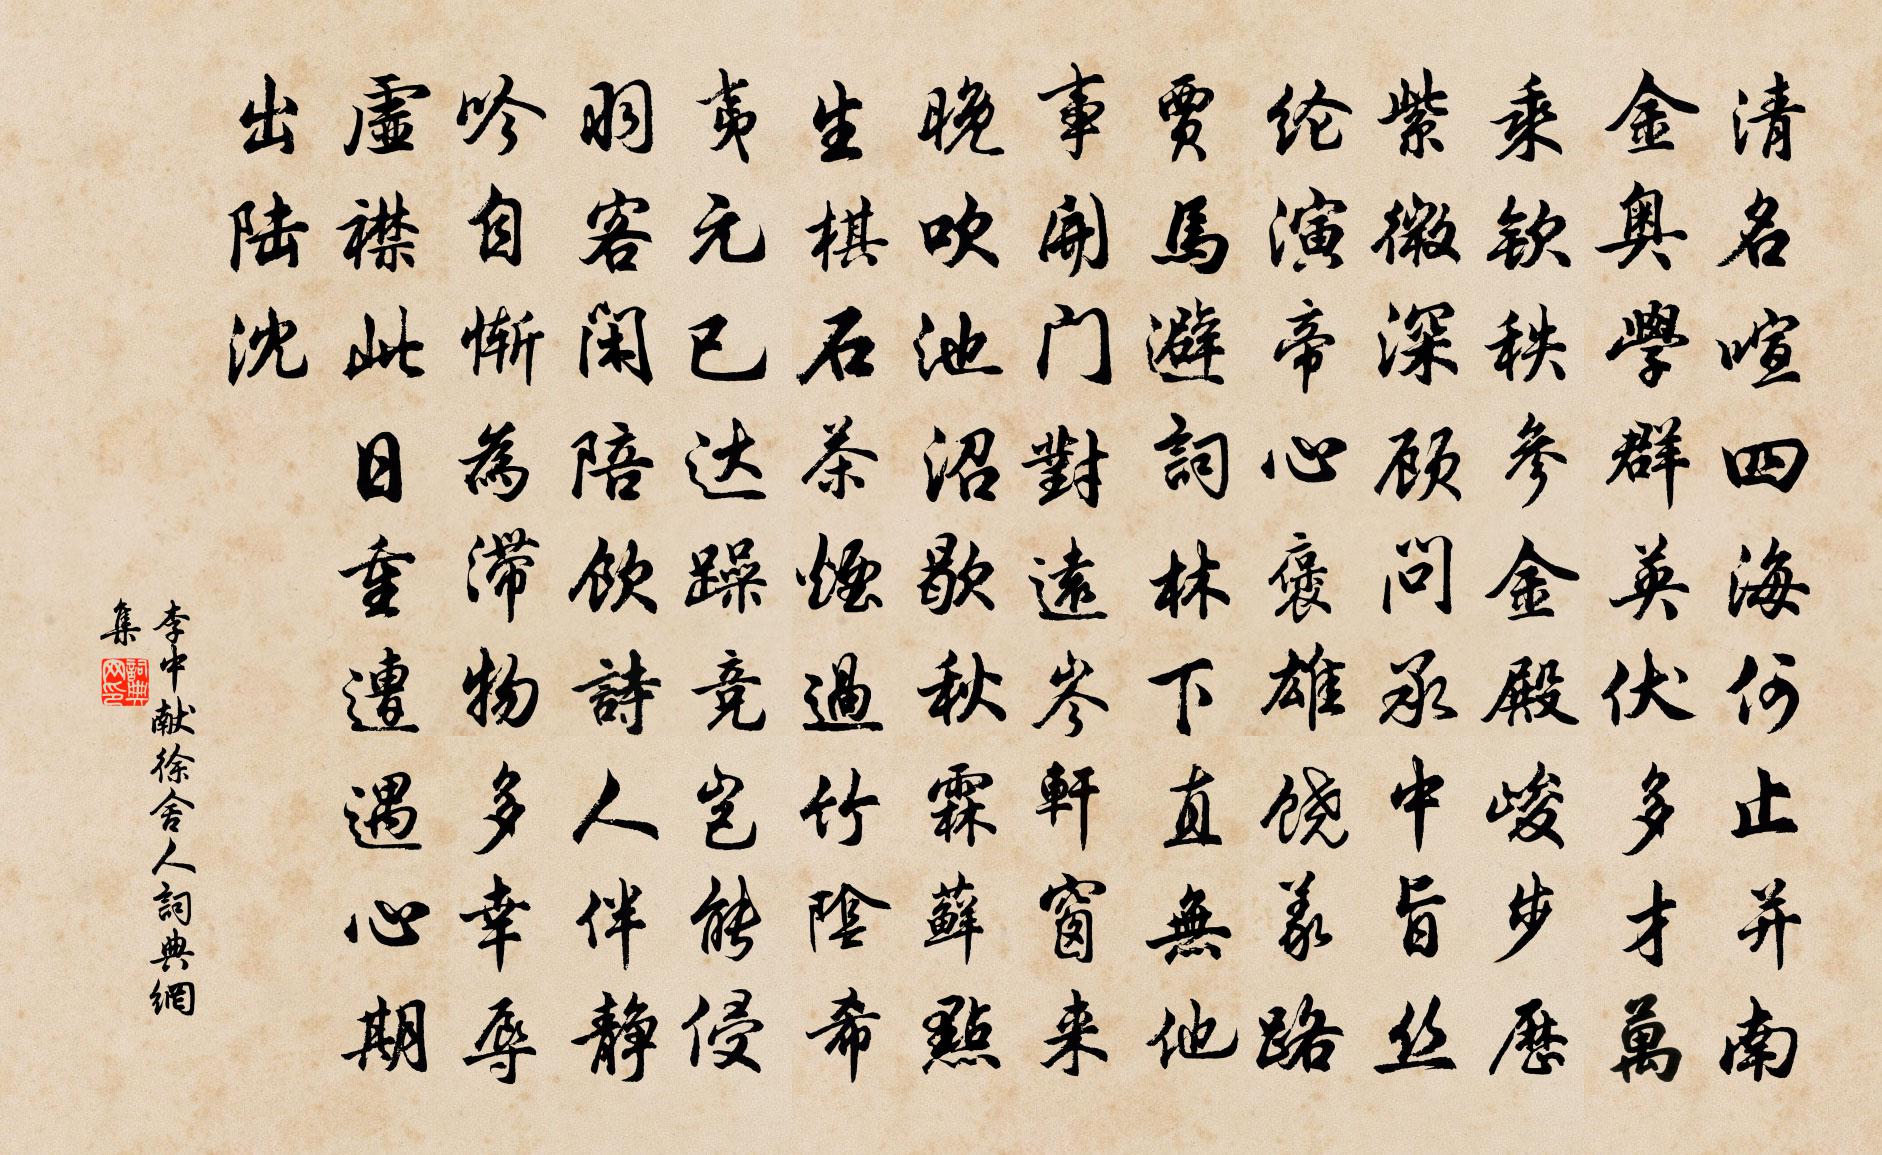 清名喧四海何止并南
金奥學群英伏多才萬
乘欽秩參金殿峻步歷
紫微深顾問承中旨丝
纶演帝心褒雄饶義路
贾馬避詞林下直無他
事開门對遠岑軒窗来
晚吹池沼歇秋霖蘚點
生棋石茶煙過竹陰希
夷元已达躁竞岂能侵
羽客閑陪飲詩人伴静
吟自惭為滞物多幸辱
虛襟此日重遭遇心期
出陆沈
李中献徐舍人詞典網
集
詞典
网印